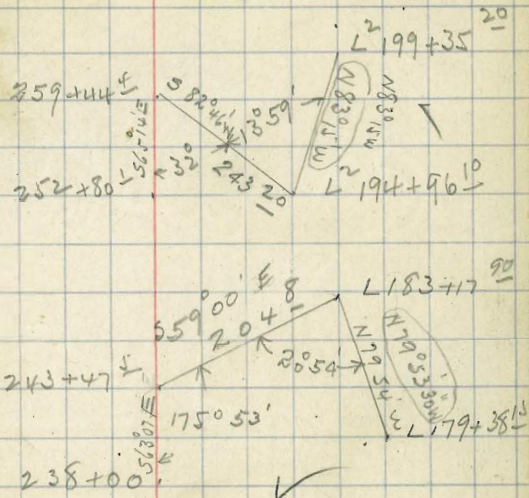 L² 199+35 20
259+44 4
S 82°46' W
13°59'
N83°15'W
N83°15W
S65°14'E
32°
243 20
252+80 1
L² 194+96 10
S59°00' E
204 8
L183+17 90
20°54'
N79°53'30"W
N79°54' E
243+47 4
175°53'
S63°07'E
L179+38 15
238+00